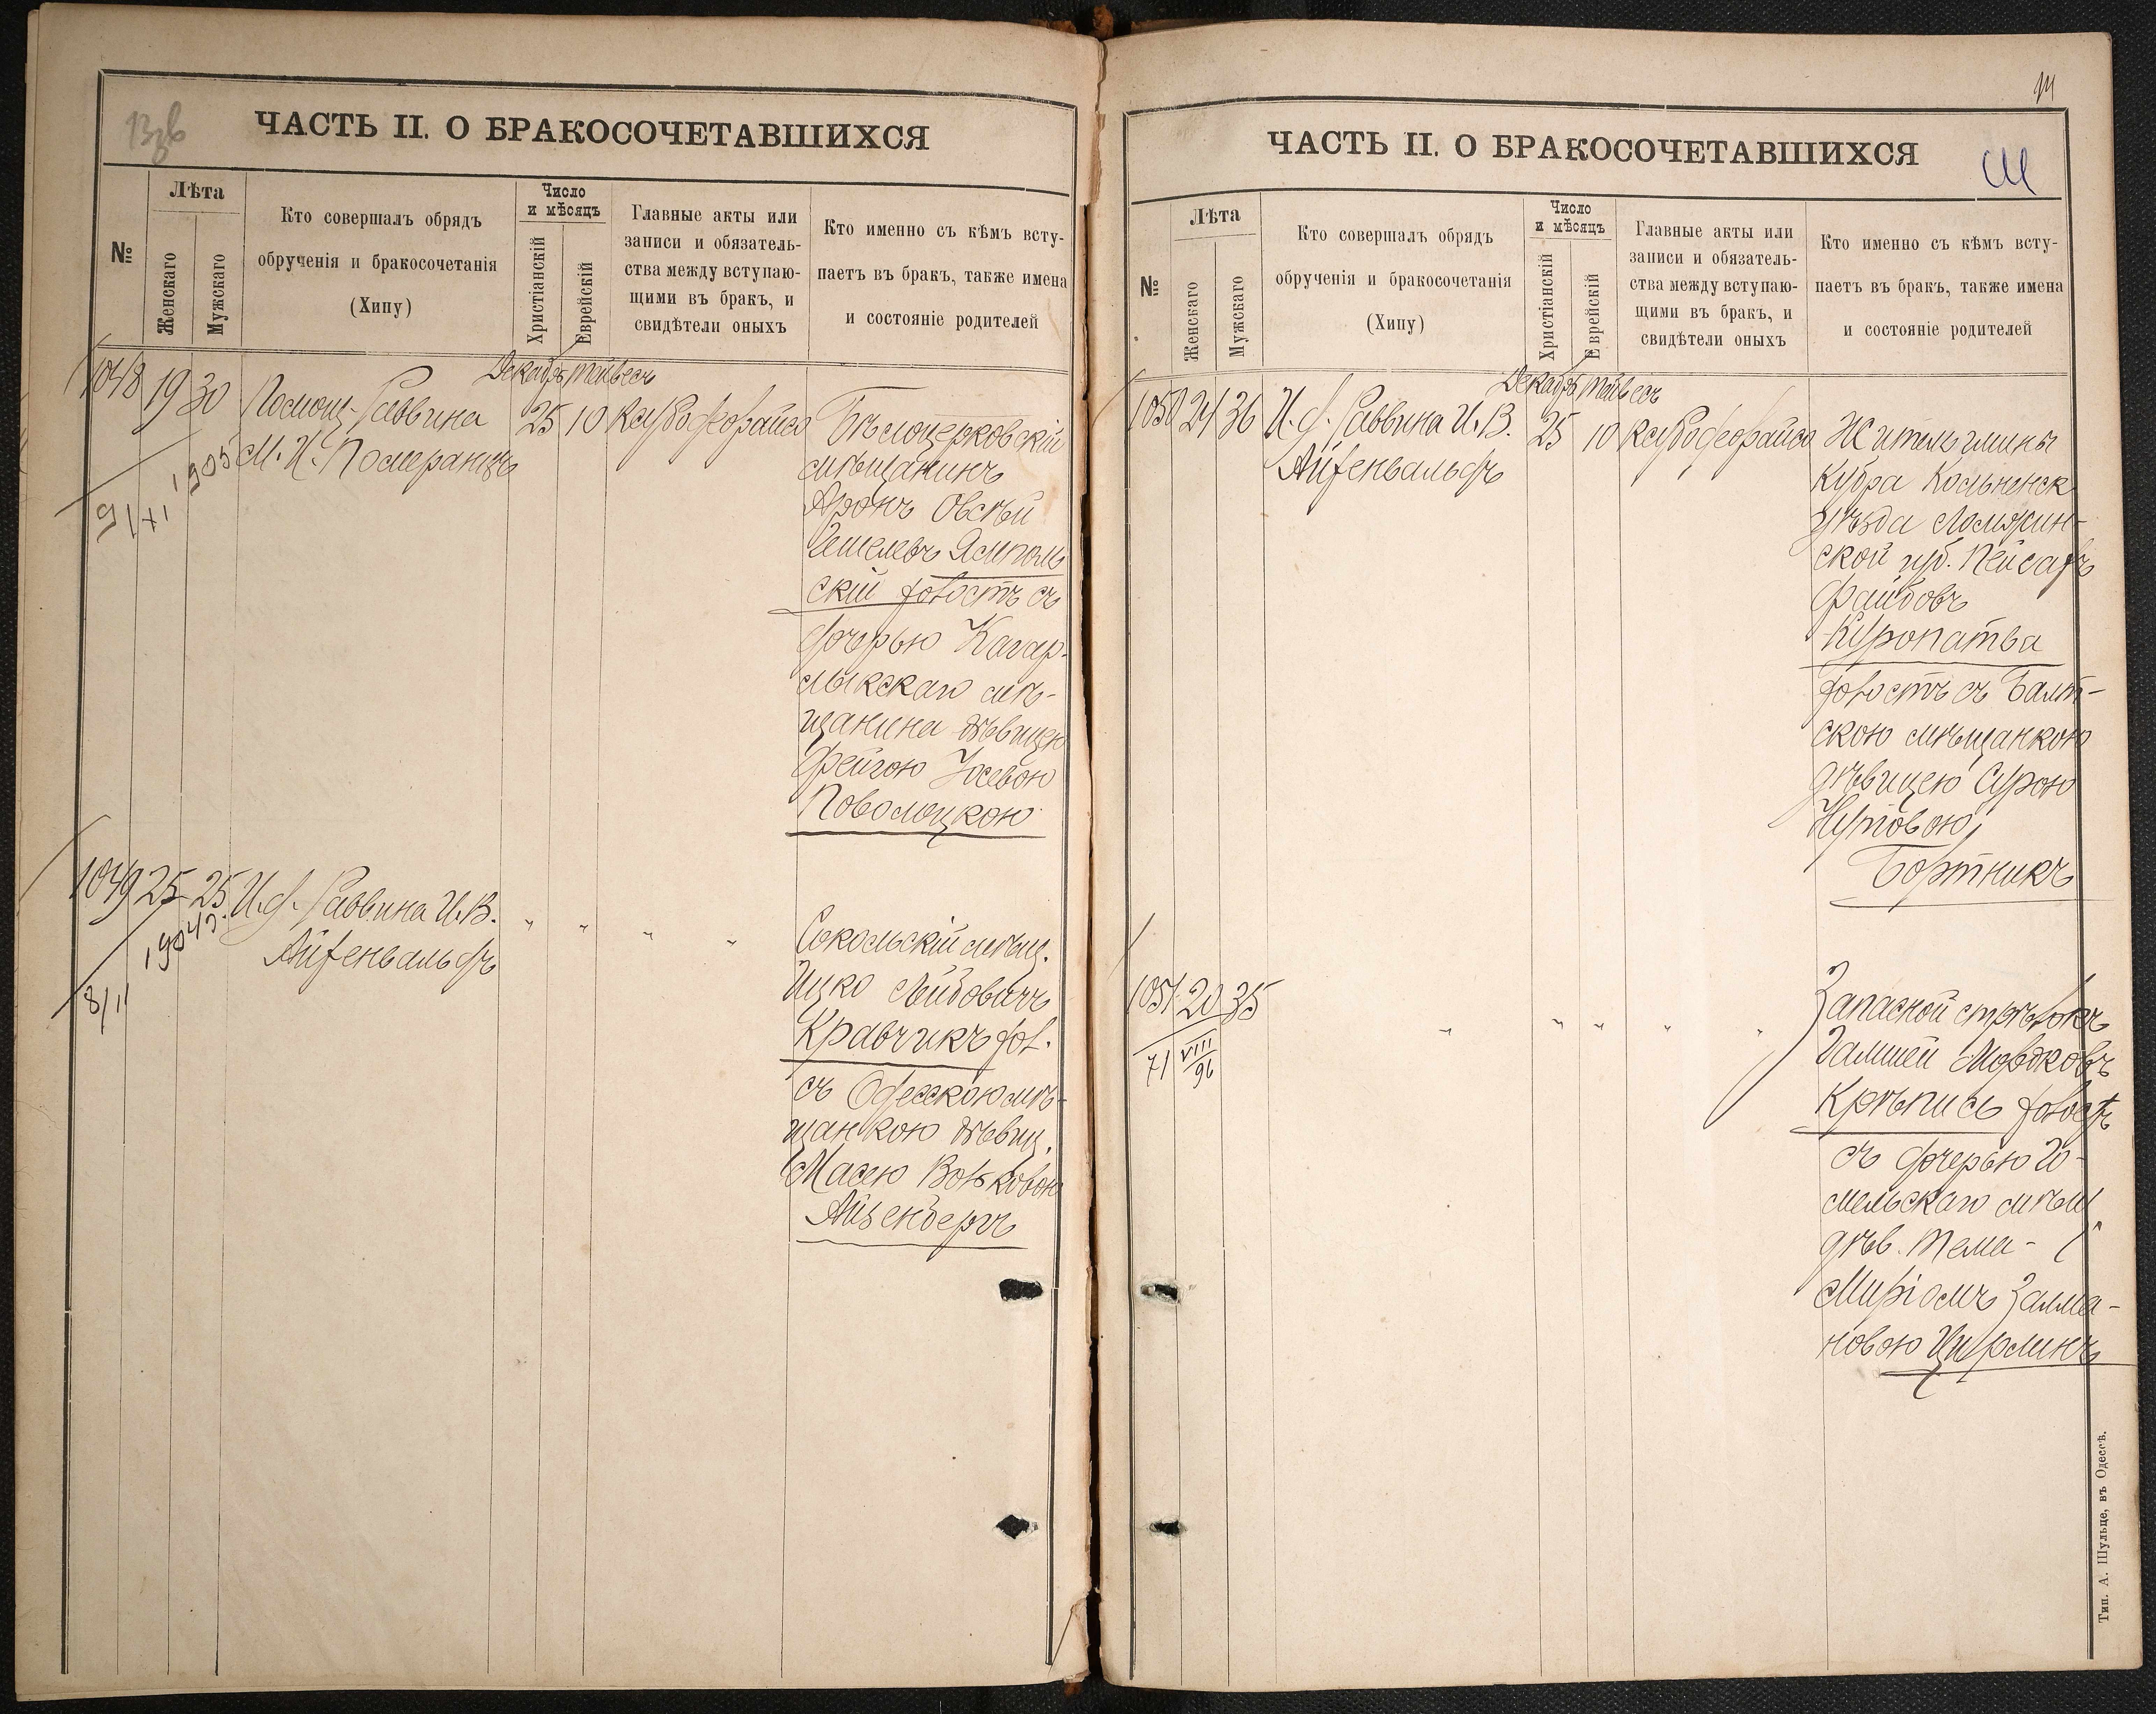 ЧАСТЬ II. О БРАКОСОЧЕТАВШИХСЯ
№
Лѣта
Женскаго
Мужскаго
Кто совершалъ обрядъ
обрученія и бракосочетанія
(Хипу)
Число
и мѣсяцъ
Христіанскій
Еврейскій
Главные акты или
записи и обязатель-
ства между вступаю-
щими въ бракъ, и
свидѣтели оныхъ
Кто именно съ кѣмъ всту-
паетъ въ бракъ, также имена
и состояніе родителей
Декабрь Тейвесъ
1048 19 30 Помощ. Раввина 25 10
М. И. Померанцъ
1905
Бѣлоцерковскій
мѣщанинъ
Аронъ Овсѣй
Ямполь
скій холостъ съ
дочерью Кагар-
лыкскаго мѣ-
щанина дѣвицею
Фейгою Іосевою
Поволоцкою
1049 25 25 И. д. Раввина И. В. " " " "
Айзенвальдъ
1904
8/II
Сокольскій мѣщ.
Ицко Лейбовичъ
Кравчикъ хол.
съ Одесскою мѣ-
щанкою дѣвиц.
Масею Вольковою
Айзенбергъ
14
ЧАСТЬ II. О БРАКОСОЧЕТАВШИХСЯ
№
Лѣта
Женскаго
Мужскаго
Кто совершалъ обрядъ
обрученія и бракосочетанія
(Хипу)
Число
и мѣсяцъ
Христіанскій
Еврейскій
Главные акты или
записи и обязатель-
ства между вступаю-
щими въ бракъ, и
свидѣтели оныхъ
Кто именно съ кѣмъ всту-
паетъ въ бракъ, также имена
и состояніе родителей
Декабрь Тейвесъ
1050 24 36 И. д. Раввина И. В. 25 10
Айзенвальдъ
Житель гмины
Кубра Кольненск
уѣзда Ломжин-
ской губ. Пейсахъ
Файбовъ
Куропатва
холостъ съ Балт-
скою мѣщанкою
дѣвицею Сурою
Нутовою
Бортникъ
1051 20 35 " " " " "
VIII
96
Запасной стрѣлокъ
Мордковъ
Крѣпись холостъ
съ дочерью Го-
мельскаго мѣщ.
дѣв. Тема-
Миріомъ Залма-
новою Цирлинъ
Тип. А. Шульце, въ Одессѣ.